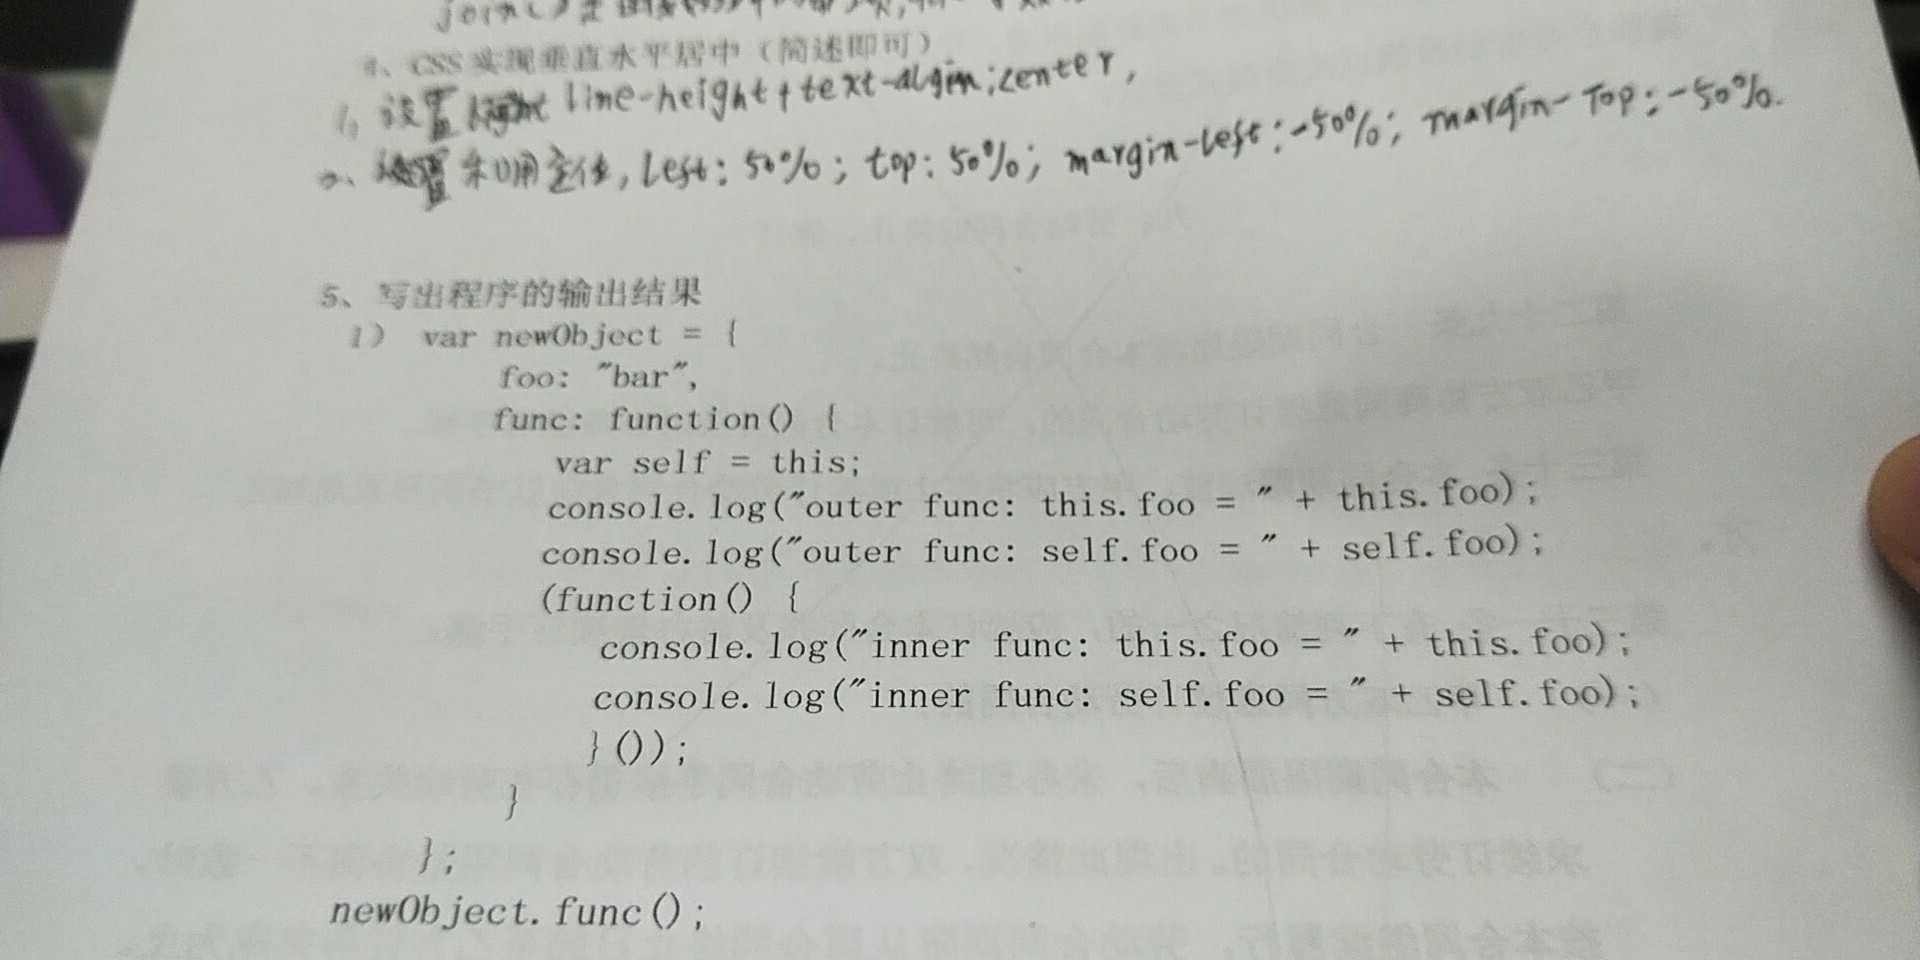 join()
4、CSS实现垂直水平居中（简述即可）
1、设置 line-height+text-algin:center,
2、利用定位, Left: 50%; top: 50%; margin-Left:-50%; margin-Top:-50%.
5、写出程序的输出结果
1) var newObject = {
foo: "bar",
func: function() {
var self = this;
console.log("outer func: this.foo = " + this.foo);
console.log("outer func: self.foo = " + self.foo);
(function() {
console.log("inner func: this.foo = " + this.foo);
console.log("inner func: self.foo = " + self.foo);
}());
}
};
newObject.func();